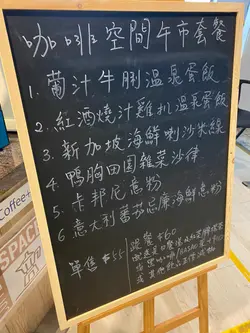 咖啡空間午市套餐
1. 葡汁牛脷溫泉蛋飯
2. 紅酒燒汁雞扒溫泉蛋飯
3. 新加坡海鮮喇沙米線
4. 鴨胸田園雜菜沙律
5. 卡邦尼意粉
6 意大利番茄忌廉海鮮意粉
單售 $55
跟餐 $60
Coffee
SPACE